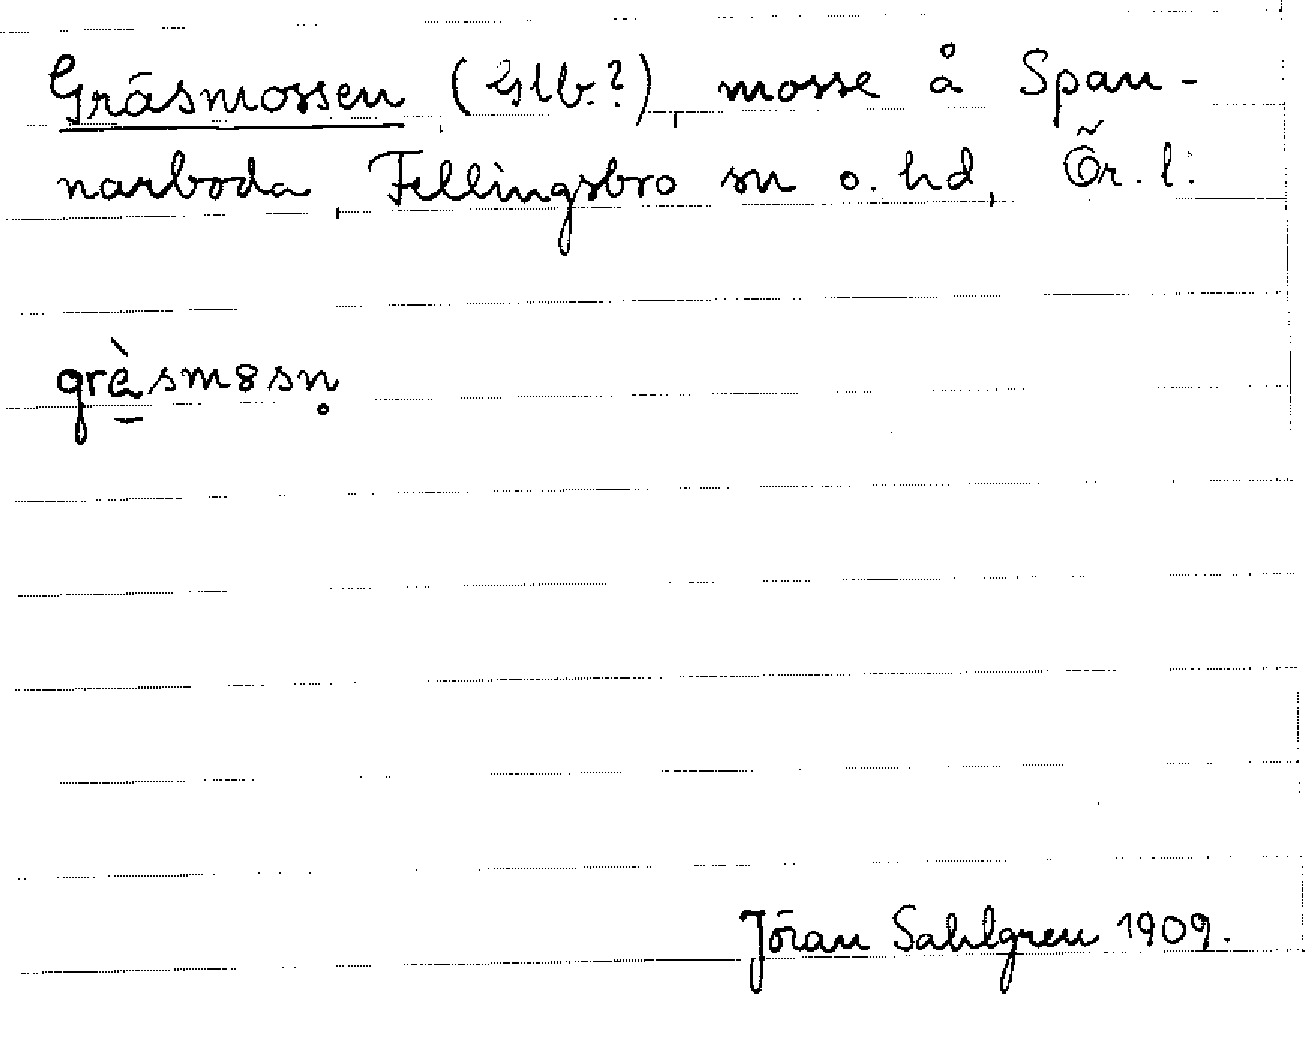 Gräsmossen (Glb.?), mosse å Span-
narboda, Fellingsbro sn o. hd, Ör. l.
grè̱sm8sn̥
Jöran Sahlgren 1909.